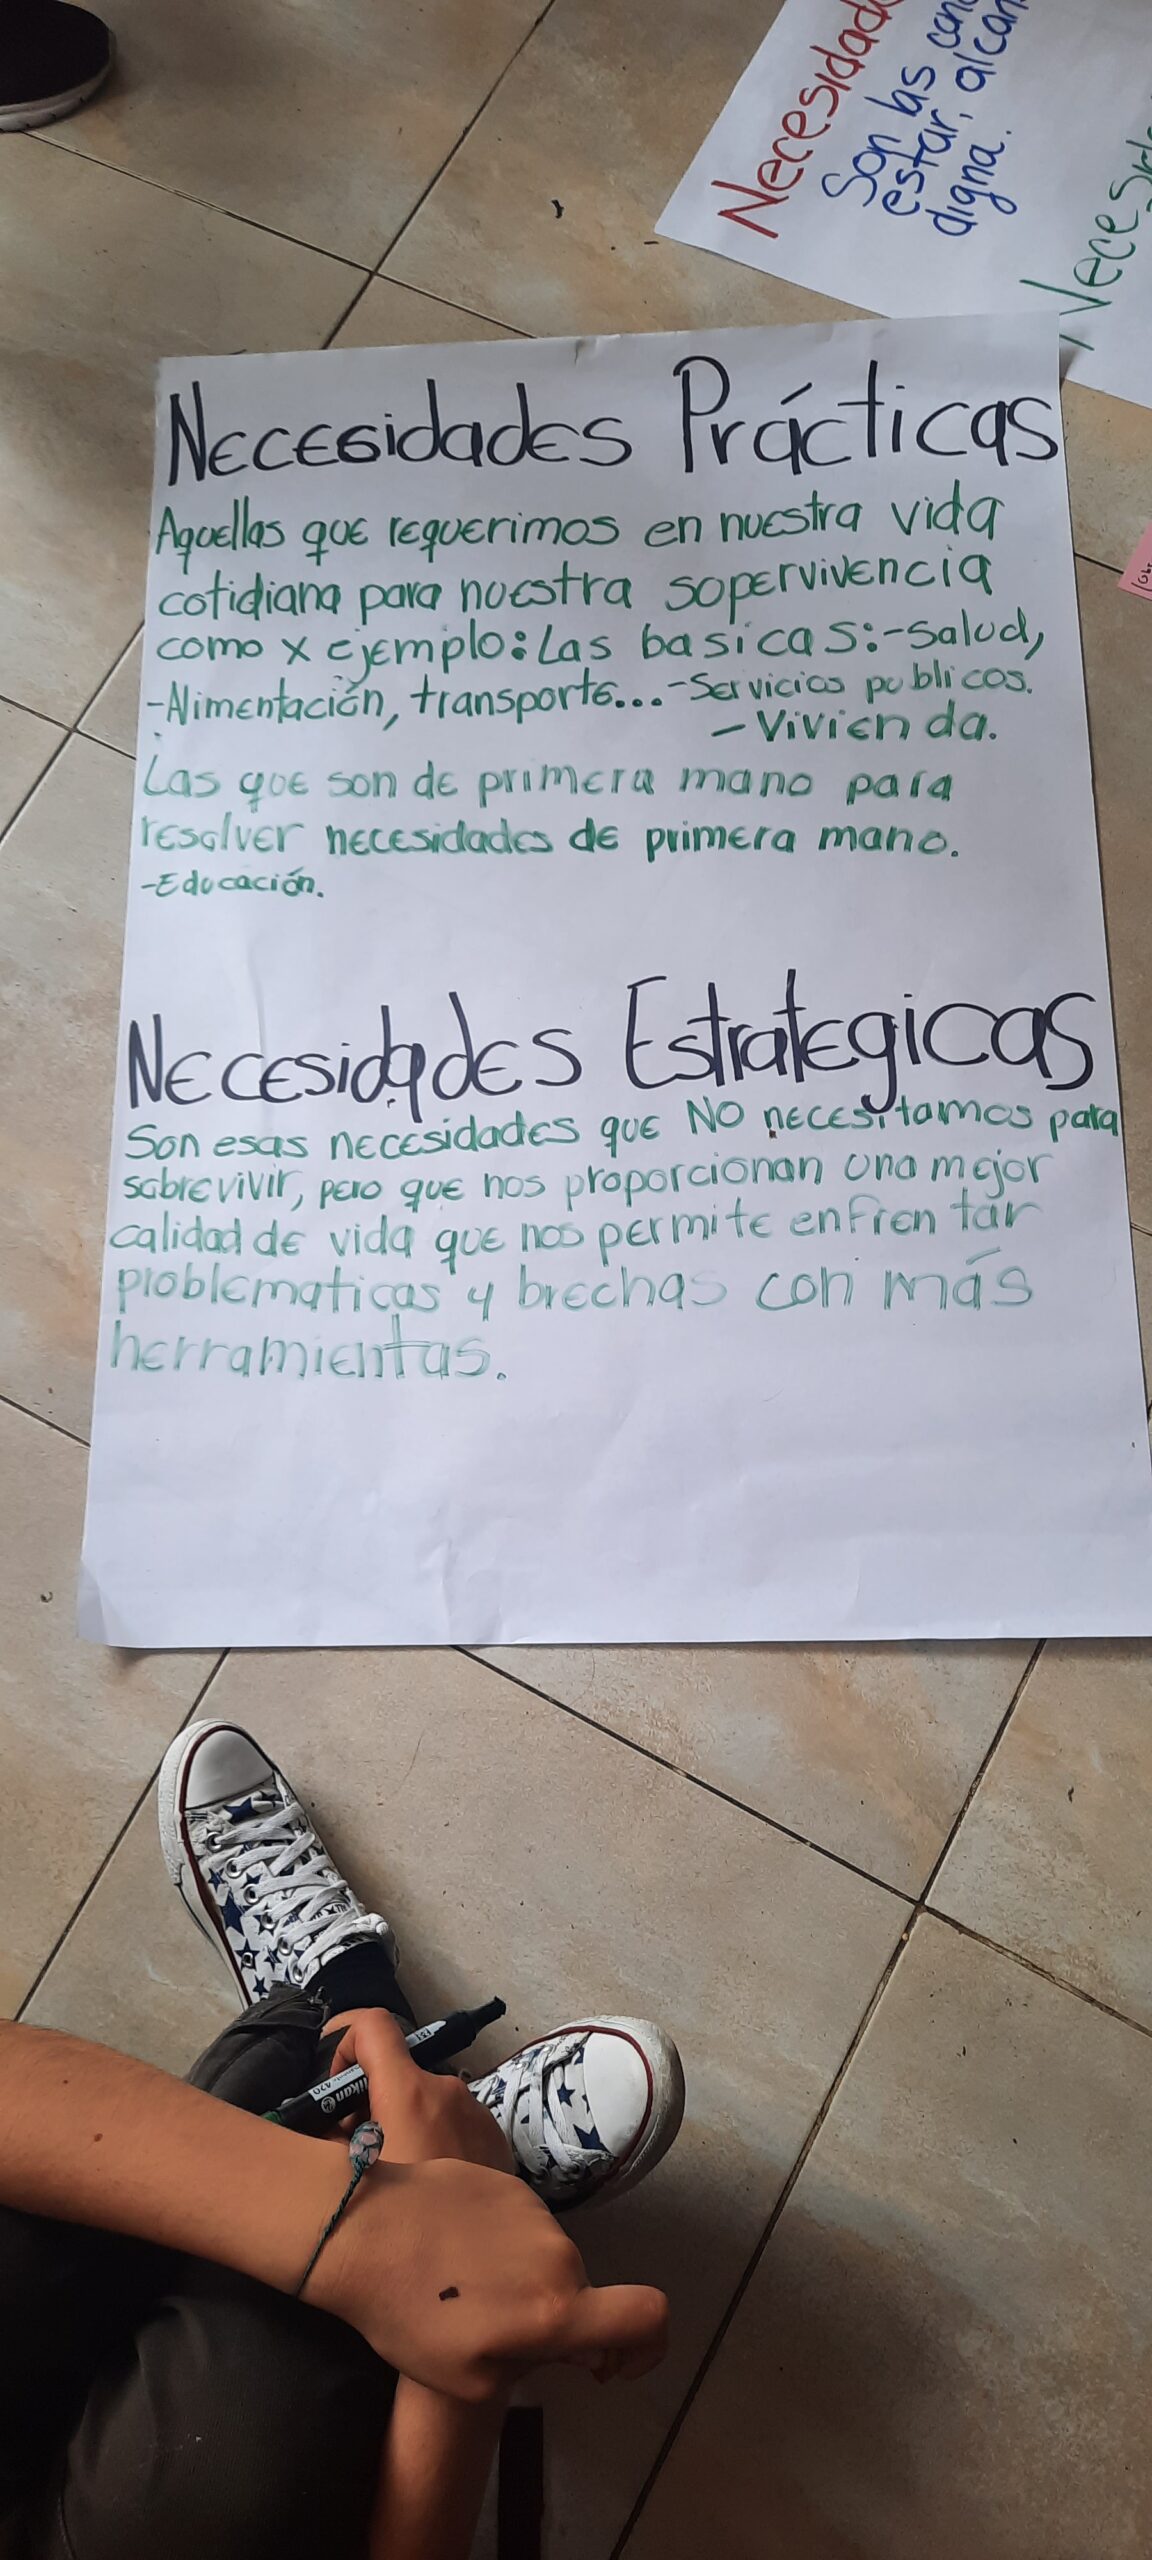 Necesidades Prácticas
Aquellas que requerimos en nuestra vida
cotidiana para nuestra sopervivencia
como x ejemplo: Las basicas:-Salud,
-Alimentación, transporte...-Servicios publicos.
-Vivienda.
Las que son de primera mano para
resolver necesidades de primera mano.
-Educación.
Necesidades Estrategicas
Son esas necesidades que NO necesitamos para
sobrevivir, pero que nos proporcionan una mejor
calidad de vida que nos permite enfrentar
problematicas y brechas con más
herramientas.
Necesidade
Son las con
estar, alcan
digna.
Neces